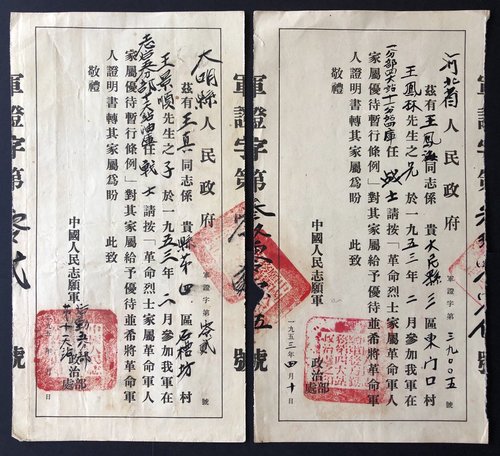 大明縣人民政府
軍證字第零貳號
茲有王真同志係 貴縣第四區石 坊村
王景順先生之子於一九五三年二月參加我軍在
任戰士請按「革命烈士家屬革命軍人
家屬優待暫行條例」對其家屬給予優待並希將革命軍
人證明書轉其家屬為盼 此致
敬禮
中國人民志願軍 政治部處
月 日
軍證字第零貳號
河北省人民政府
軍證字第三九〇〇五號
茲有王鳳 同志係 貴大民縣三區東门口村
王鳳林先生之兄於一九五三年二月參加我軍在
一分部四大站十一分站四庫任战士請按「革命烈士家屬革命軍人
家屬優待暫行條例」對其家屬給予優待並希將革命軍
人證明書轉其家屬為盼 此致
敬禮
中國人民志願軍 政治部處
一九五三年四月十日
軍證字第 號